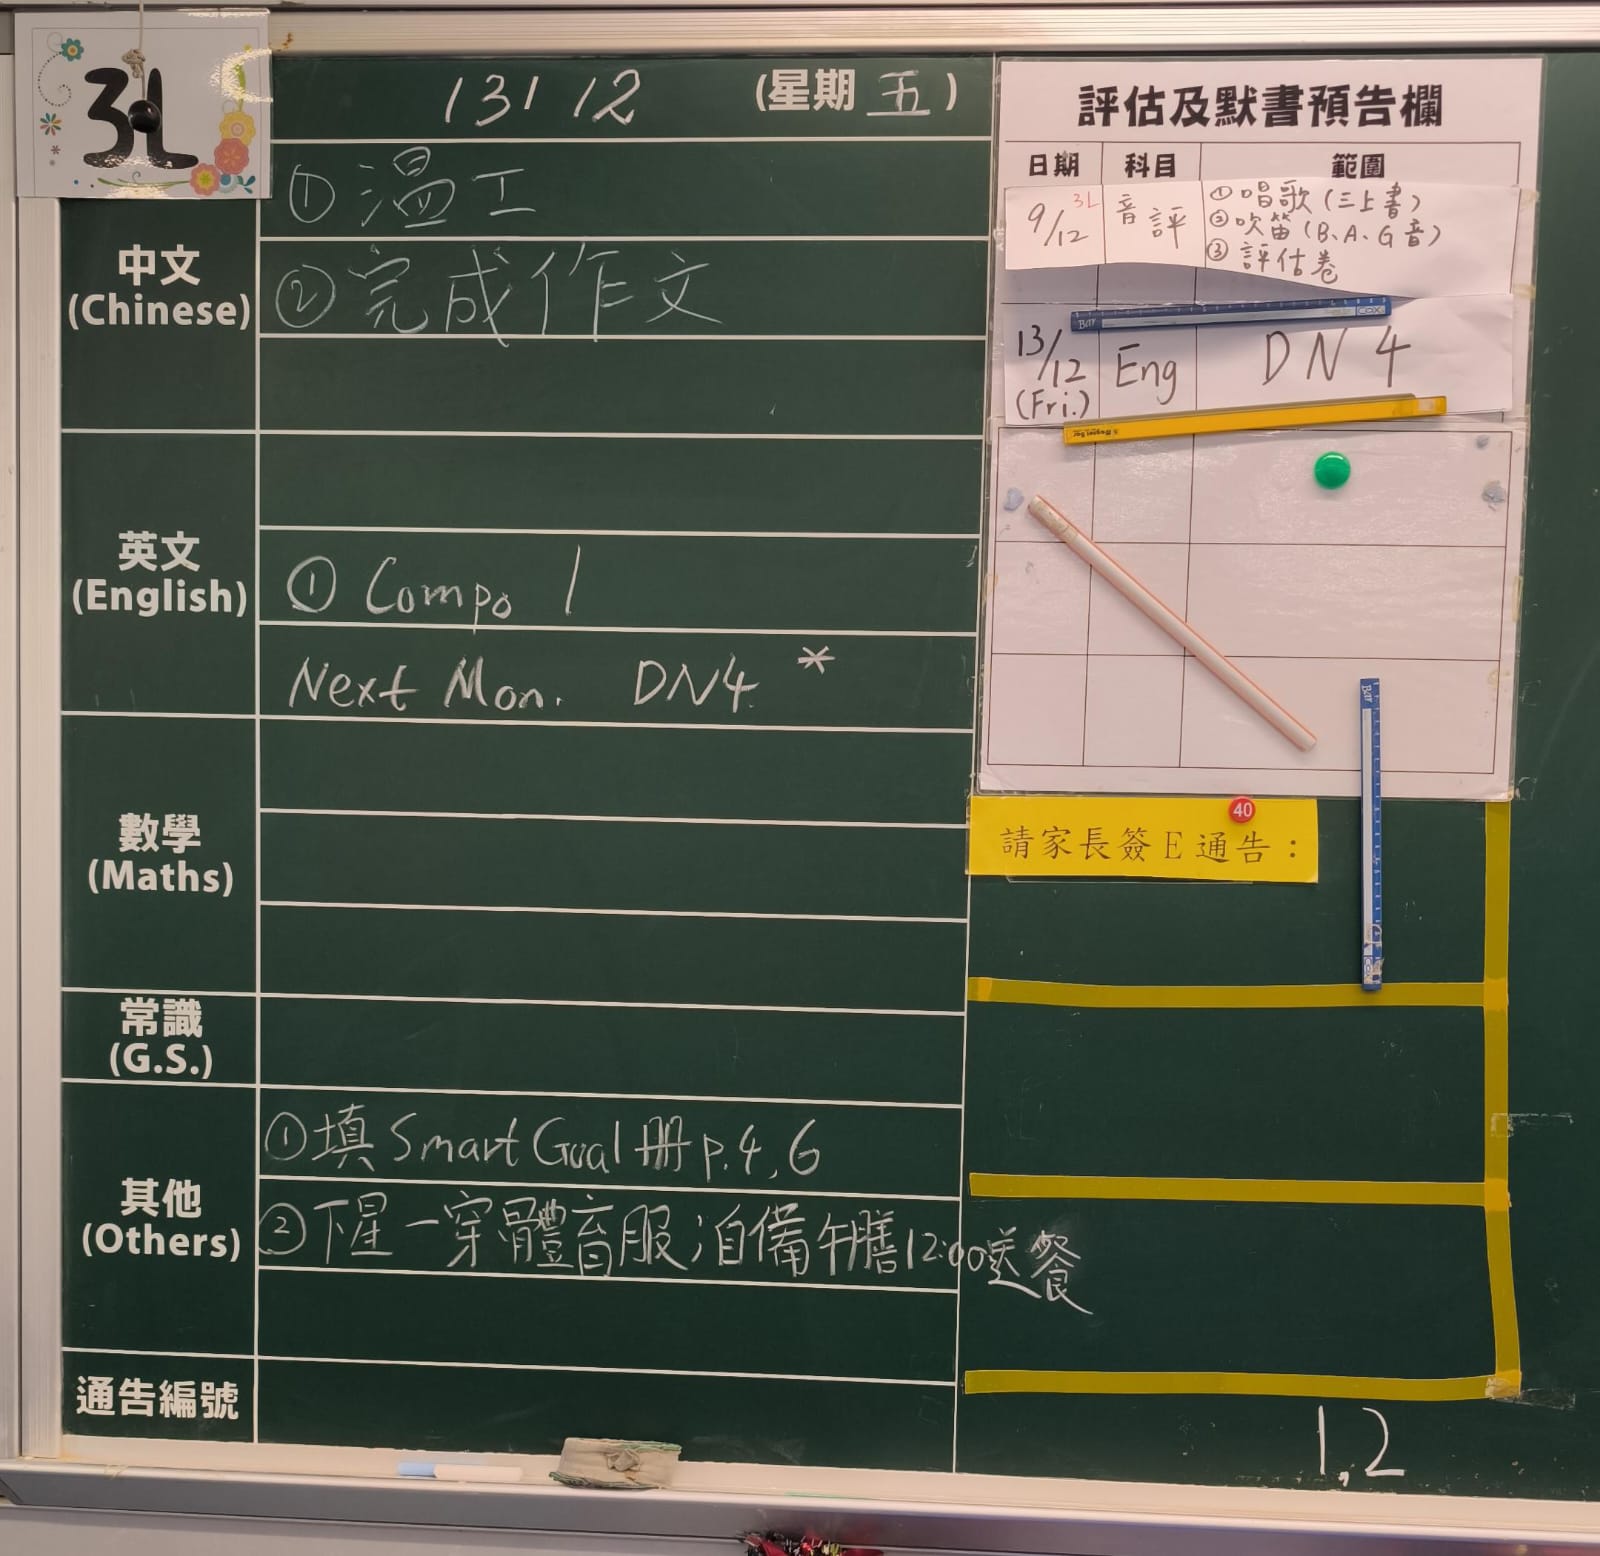 3L
13 / 12 (星期 五 )
中文
(Chinese)
① 溫工
② 完成作文
英文
(English)
① Compo 1
Next Mon. DN4 *
數學
(Maths)
常識
(G.S.)
其他
(Others)
① 填 Smart Goal 冊 p.4, 6
② 下星一穿體育服;自備午膳12:00送餐
通告編號
評估及默書預告欄
日期 科目 範圍
9/12 3L 音評 ① 唱歌 (三上書)
② 吹笛 (B、A、G音)
③ 評估卷
13/12 (Fri.) Eng DN 4
40
請家長簽E通告:
1,2